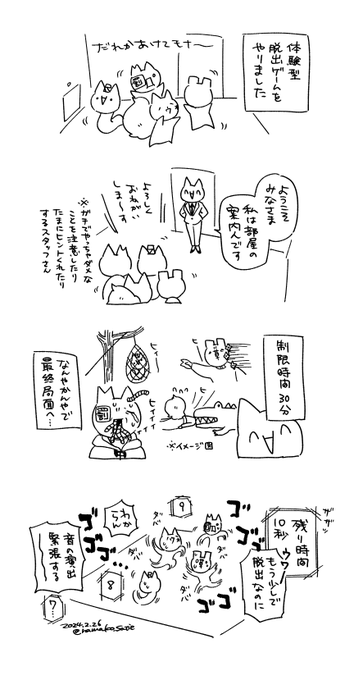 体験型
脱出ゲームを
やりました
だれかあけてモナ〜
ようこそ
みなさま
私は部屋の
案内人です
よろしく
おねがい
しま〜す
※ガチでやっちゃダメな
ことを注意したり
たまにヒントくれたり
するスタッフさん
制限時間30分
ヒィー
ヒィイイイ
※イメージ図
なんやかんやで
最終局面へ…
ガガッ
残り時間
10秒
ウワー
もう少しで
脱出なのに
ゴゴゴ
ゴゴゴ
ゴゴゴ…
9
ダバ
ダバ
ダバ
ダバ
わか
らん
8
音の演出
緊張する
7…
2024.2.26